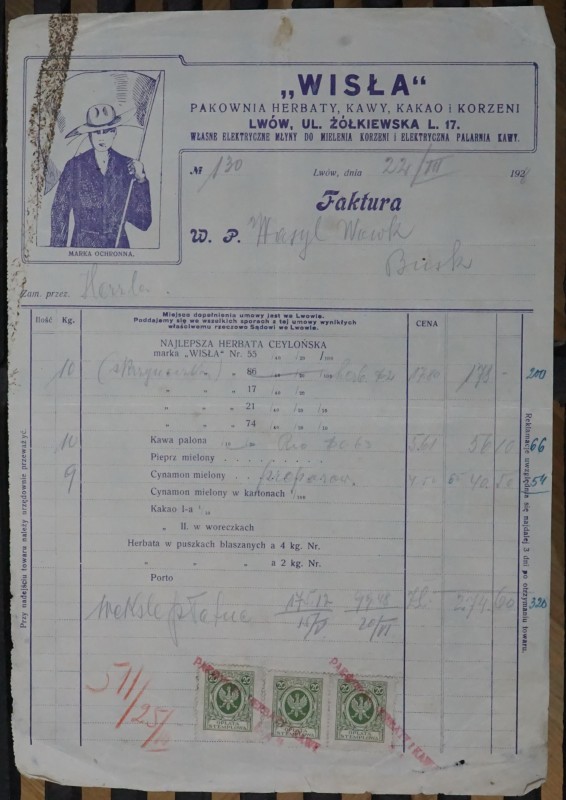 „WISŁA“
PAKOWNIA HERBATY, KAWY, KAKAO i KORZENI
LWÓW, UL. ŻÓŁKIEWSKA L. 17.
WŁASNE ELEKTRYCZNE MŁYNY DO MIELENIA KORZENI i ELEKTRYCZNA PALARNIA KAWY.
MARKA OCHRONNA.
№ 130 Lwów, dnia 22/III 192
Faktura
W. P. Wasyl
Busk
Zam. przez
Ilość Kg. CENA
Miejsce dopełnienia umowy jest we Lwowie.
Poddajemy się we wszelkich sporach z tej umowy wynikłych
właściwemu rzeczowo Sądowi we Lwowie.
NAJLEPSZA HERBATA CEYLOŃSKA
marka „WISŁA" Nr. 55 /40 /20 /100
10 „ „ 86 200
„ „ 17
„ „ 21
„ „ 74
10 Kawa palona 561 56 10 66
Pieprz mielony
9 Cynamon mielony 4.50 40 50 54
Cynamon mielony w kartonach 1/100
Kakao I-a 1/10
„ II. w woreczkach
Herbata w puszkach blaszanych a 4 kg. Nr.
„ „ „ a 2 kg. Nr.
Porto
weksle płatne 274.60 320
Przy nadejściu towaru należy urzędownie przeważyć.
Reklamacje uwzględnia się najdalej 3 dni po otrzymaniu towaru.
511/25/III
OPŁATA STEMPLOWA
OPŁATA STEMPLOWA
OPŁATA STEMPLOWA
HERBATY I KAWY